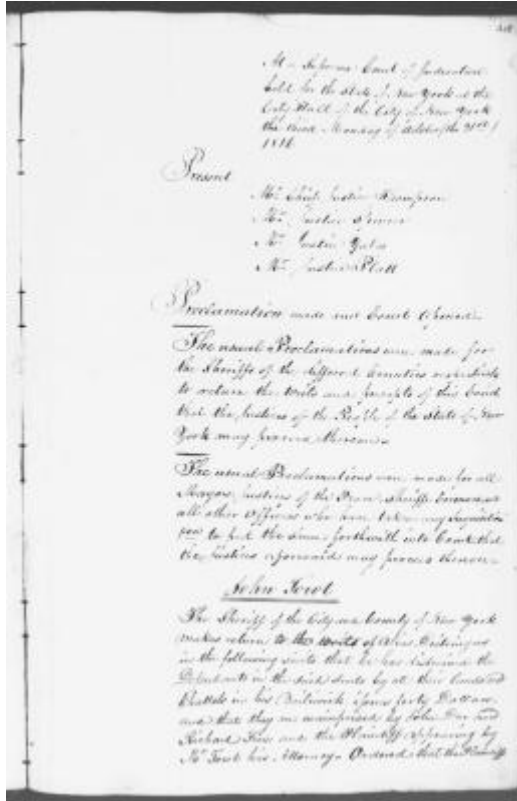 At a Supreme Court of Judicature
held for the State of New York at the
City Hall of the City of New York
the third Monday of October (the 21st)
1816
Present
Mr. Chief Justice Thompson
Mr. Justice Spencer
Mr. Justice Yates
Mr. Justice Platt
Proclamation made and Court opened.
The usual Proclamations were made for
the Sheriffs of the different Counties
to return the writs and precepts of this Court
that the Justices of the People of the State of New
York may proceed thereon
The usual Proclamations were made for all
Mayors, Justices of the Peace, Sheriffs, Coroners,
all other Officers who have taken any
to put the same forthwith into Court that
the Justices aforesaid may proceed thereon
John
The Sheriff of the City and County of New York
makes return to the writs of
in the following suits that he has distrained the
Defendants in the said suits by all their lands and
Chattels in his Bailiwick Issues forty Dollars
and that they are mainprised by John Doe and
Richard Fenn and the Plaintiff appearing by
Mr. his Attorney Ordered that the Plaintiff